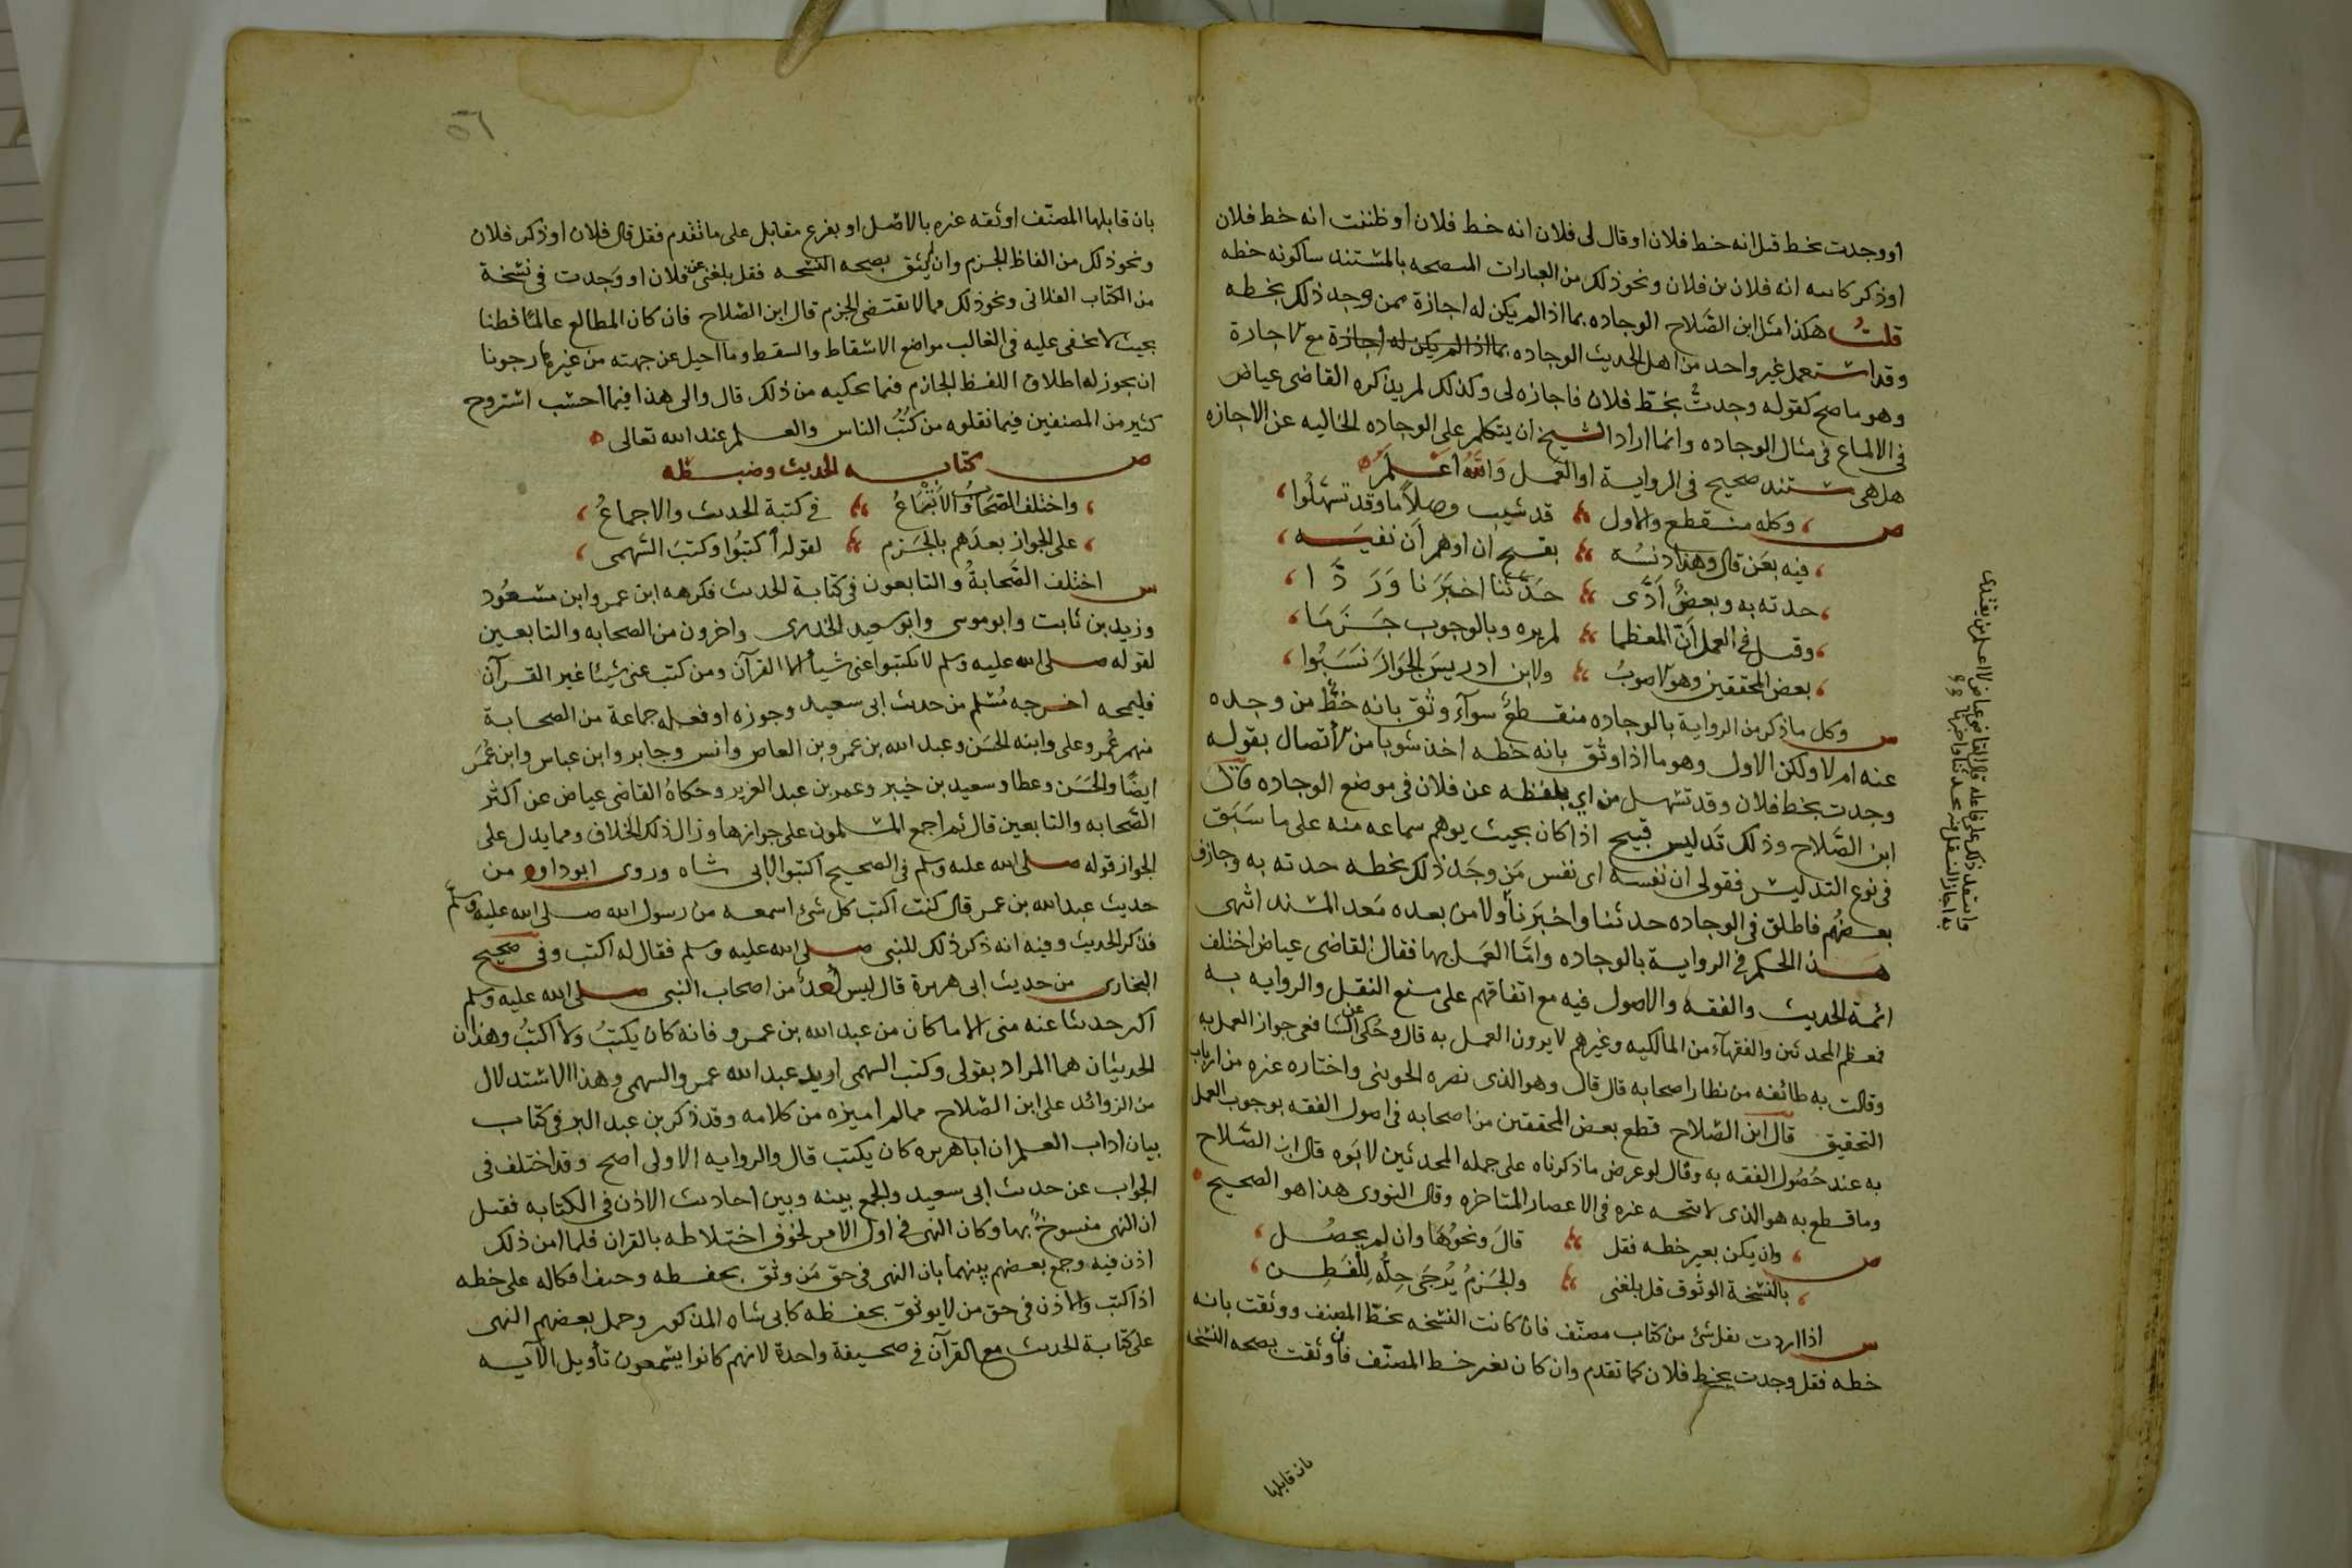 او وجدت بخط قيل انه خط فلان او قال لى فلان انه خط فلان او ظننت انه خط فلان
او ذكر كاتبه انه فلان بن فلان ونحو ذلك من العبارات المفصحه بالمستند ساكونه خطه
قلت هكذا مثل ابن الصّلاح الوجاده بما اذا لم يكن له اجازة ممن وجد ذلك بخطه
وقد استعمل غير واحد من اهل الحديث الوجاده بما اذا لم يكن له اجازة مع الاجازة
وهو ماصح كقوله وجدتُ بخطّ فلان فاجازه لى وكذلك لم يذكره القاضى عياض
فى الالماع فى مثال الوجاده وانما اراد الشيخ ان يتكلم على الوجاده الخاليه عن الاجازه
هل هى مستند صحيح فى الرواية او العمل وَاللهُ اَعْلَمُ
ص ، وكله منقطع والاول قد شيب وصلاً ما وقد تسهلُوا ،
، فيه بعَن قال وهذا دلسُة يقبح ان اوهم اَن نفسَه ،
، حدثه به وبعضٌ اَدَّى حَدَّثنا اخبَرَنا وَرَدَّا ،
، وقيل فى العمل اَنّ المعظما لم يره وبالوجوب جَزَمَا ،
، بعض المحققين وهو الاصوبُ ولابن ادريسَ الجَوَازَ نَسَبُوا ،
س وكل ما ذكر من الرواية بالوجاده منقطعٌ سوآء وثق بانه خطُّ من وجده
عنه ام لا ولكن الاول وهو ما اذا وثق بانه خطه اخذ شوبا من الأتصال بقوله
وجدت بخط فلان وقد تسهل من اي بلفظه عن فلان فى موضع الوجاده قال
ابن الصَّلاح وذلك تَدليس قبيح اذا كان بحيث يوهم سماعه منه على ما سَبَق
فى نوع التدليس فقولى ان نفسه اى نفس مَن وجَد ذلك بخطه حدثه به وجازف
بعضُهُم فاطلق فى الوجاده حدثنا واخبَرَنا ولا من بعده مَعد المسند انتهى
هذا الحكم فى الرواية بالوجاده وامّا العَمَل بها فقال القاضى عياض اختلف
ائمة الحديث والفقه والاصول فيه مع اتفاقهم على منع النقل والروايه به
فمعظم المحدثين والفقهآء من المالكيه وغيرهم لا يرون العمل به قال وحُكى عن الشافعى جواز العمل به
وقالت به طائفه من نظار اصحابه قال قال وهو الذى نصره الجوينى واختاره غيره من ارباب
التحقيق قال ابن الصّلاح قطع بعض المحققين من اصحابه فى اصول الفقه بوجوب العمل
به عند حُصُول الفقه به وقال لو عرض ما ذكرناه على جمله المحدثين لابَوه قال ابن الصَّلاح
وما قطع به هو الذى لا يتجه غيره فى الاعصار المتاخره وقال النووى هذا هو الصحيح
ص ، وان يكن بغير خطه فقل قالَ ونحوُهَا وان لم يحصُل ،
، بالنسخة الوثوق قل بلغنى والجَزمُ يُرجَى حِلُّه لِلْفَطِن ،
س اذا اردت نقل شئ من كتاب مصنّف فان كانت النسخه بخطّ المصنف ووثقت بانه
خطه فقل وجدت بخط فلان كما تقدم وان كان بغير خط المصنّف فان وثقت بصحه النسخه
بان قابلها
بان قابلها المصنّف او ثقه غيره بالاصل او بفرع مقابل على ما تقدم فقل قال فلان او ذكر فلان
ونحو ذلك من الفاظ الجزم وان لم يثق بصحه النسخه فقل بلغنى عن فلان او وَجدت فى نسخة
من الكتاب الفلانى ونحو ذلك مما لا يقتضى الجزم قال ابن الصّلاح فان كان المطالع عالمًا فطنا
بحيث لا يخفى عليه فى الغالب مواضع الاسقاط والسقط وما احيل عن جهته من غيرها رجونا
ان يجوز له اطلاق اللفظ الجازم فيما يحكيه من ذلك قال والى هذا فيما احسب استروح
كثير من المصنفين فيما نقلوه من كُتُب الناس والعلم عند الله تعالى
ص كتابة الحديث وضبطه
، واختلف الصّحَابُ والاَتْبَاعُ فى كتبة الحديث والاجماعُ ،
، على الجواز بعدَهم بالجَزم لقوله اكتبُوا وكتبَ السّهمى ،
س اختلف الصَّحابةُ والتابعون فى كتابة الحديث فكرهه ابن عمر وابن مسعُود
وزيد بن ثابت وابو موسى وابو سعيد الخدرى واخرون من الصحابه والتابعين
لقوله صلى الله عليه وسلم لا تكتبوا عنى شيأ الا القرآن ومن كتب عنى شيئا غير القرآن
فليمحه اخرجه مُسْلم من حديث ابى سعيد وجوزه او فعله جماعة من الصحابة
منهم عُمر وعلى وابنه الحسَن وعبد الله بن عمرو بن العاص وانس وجابر وابن عباس وابن عُمَر
ايضًا والحَسَن وعطا وسعيد بن جبير وعمر بن عبد العزيز وحكاهُ القاضى عياض عن اكثر
الصَّحابه والتابعين قال ثم اجمع المسلمون على جوازها وزال ذلك الخلاف ومما يدل على
الجواز قوله صلى الله عليه وسلم فى الصحيح اكتبوا لابى شاه وروى ابو داود من
حديث عبد الله بن عمرو قال كنت اكتب كل شئ اسمعه من رسول الله صلى الله عليه وسلّم
فذكر الحديث وفيه انه ذكر ذلك للنبى صلى الله عليه وسلم فقال له اكتب وفى صحيح
البخارى من حديث ابى هريرة قال ليس اَحدٌ من اصحاب النبى صلى الله عليه وسلم
اكثر حديثا عنه منى الا ما كان من عبد الله بن عمرو فانه كان يكتبُ ولا اكتبُ وهذان
الحديثان هما المراد بقولى وكتب السهمى اريد عبد الله عمرو السهمى وهذا الاستدلال
من الزوائد على ابن الصّلاح مما لم اميزه من كلامه وقد ذكر بن عبد البر فى كتاب
بيان اداب العلم ان ابا هريره كان يكتب قال والروايه الاولى اصح وقد اختلف فى
الجواب عن حديث ابى سعيد والجمع بينه وبين احاديث الاذن فى الكتابه فقيل
ان النهى منسوخٌ بها وكان النهى فى اول الامر لخوف اختلاطه بالقران فلما امن ذلك
اذن فيه وجمع بعضهم بينهما بان النهى فى حق مَن وثق بحفظه وخيف اتكاله على خطه
اذا كتب والاذن فى حق من لا يوثق بحفظه كابى شاه المذكور وحمل بعضهم النهى
على كتابة الحديث مع القرآن فى صحيفة واحدة لانهم كانوا يسمعون تأويل الآيه